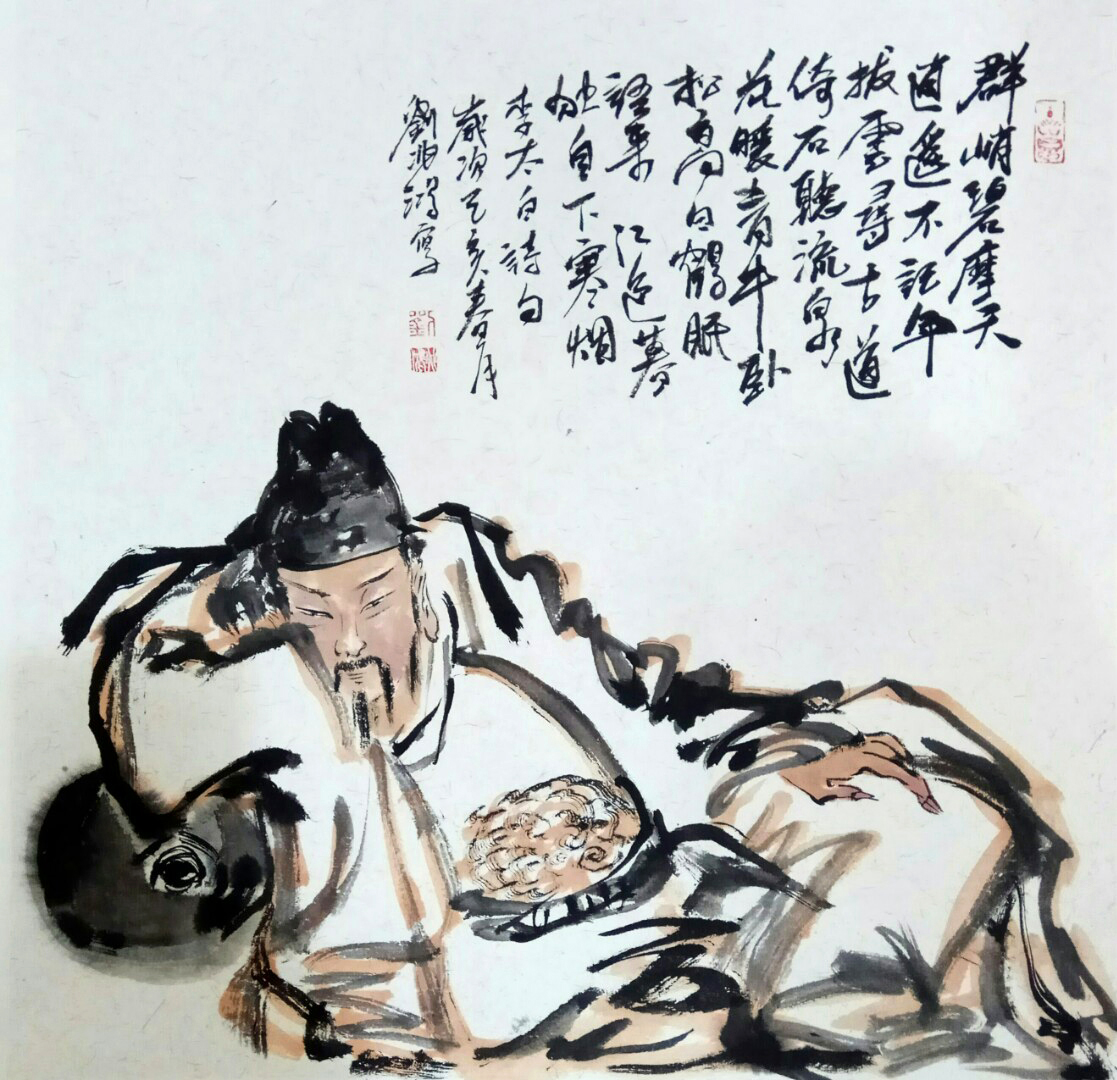 群峭碧摩天
逍遙不記年
拔雲尋古道
倚石聽流泉
花暖青牛卧
松高白鶴眠
語來江色暮
独自下寒烟
李太白詩句
歲次己亥春月
劉鴻寫